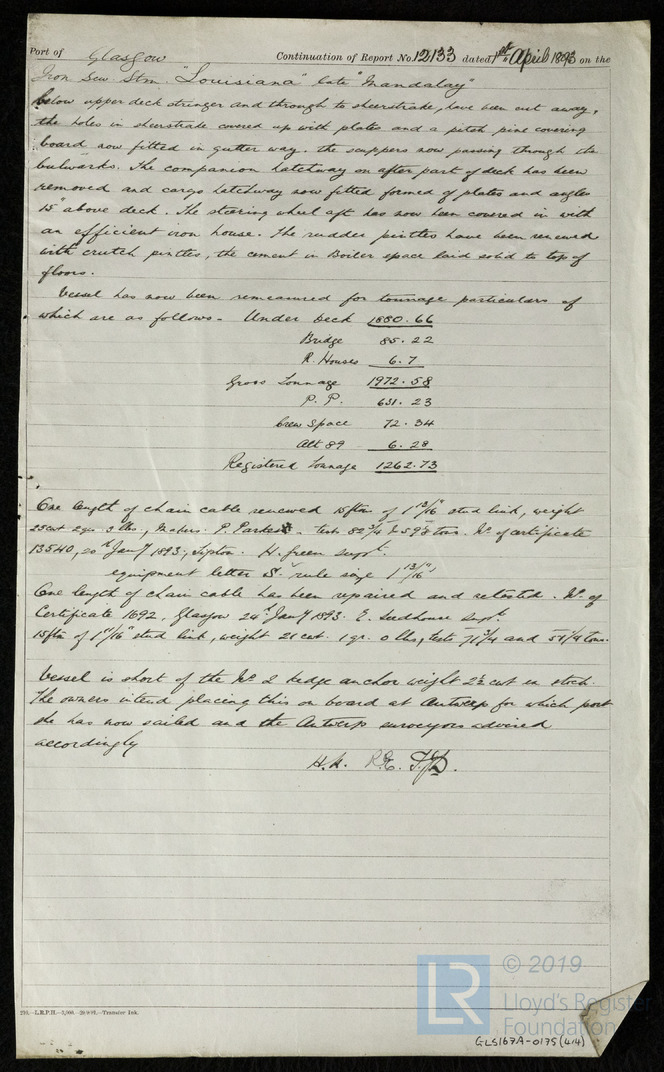 Port of Glasgow Continuation of Report No. 12133 dated 1st April 1893 on the
Iron Scw Stm "Louisiana" late "Mandalay"
below upper deck stringer and through to sheerstrake, have been cut away,
the holes in sheerstrake covered up with plates and a pitch pine covering
board now fitted in gutter way. the scuppers now passing through the
bulwarks. The companion hatchway on after part of deck has been
removed and cargo hatchway now fitted formed of plates and angles
15" above deck. The steering wheel aft has now been covered in with
an efficient iron house. The rudder pintles have been renewed
with crutch pintles, the cement in Boiler space laid solid to top of
floors.
Vessel has now been remeasured for tonnage particulars of
which are as follows - Under deck 1880.66
Bridge 85.22
R. Houses 6.7
Gross Tonnage 1972.58
P. P. 631.23
Crew Space 72.34
Alt 89 6.28
Registered Tonnage 1262.73
One length of chain cable renewed 15ftm of 1 13/16" stud link, weight
23cwt 2qrs 3 lbs, Makers. P. Parkes - test 82 3/4 & 59 1/8 tons. No. of certificate
13540, 20th Jany 1893, Tipton. H. Green Supt.
equipment letter S - rule size 1 13/16"
One length of chain cable has been repaired and retested. No. of
Certificate 1692, Glasgow 24th Jany 1893. E. Leedhouse Supt.
15ftm of 1 11/16" stud link, weight 21 cwt. 1 qr. 0 lbs, tests 71 3/4 and 51 1/4 tons.
Vessel is short of the No. 2 kedge anchor weight 2 1/2 cwt ex stock.
The owners intend placing this on board at Antwerp for which port
she has now sailed and the Antwerp surveyors advised
accordingly
H.K. R.E. T.J.D.
210.—L.R.P.H.—Transfer Ink.
LR © 2019
Lloyd's Register
Foundation
GLS167A-0175(4/4)